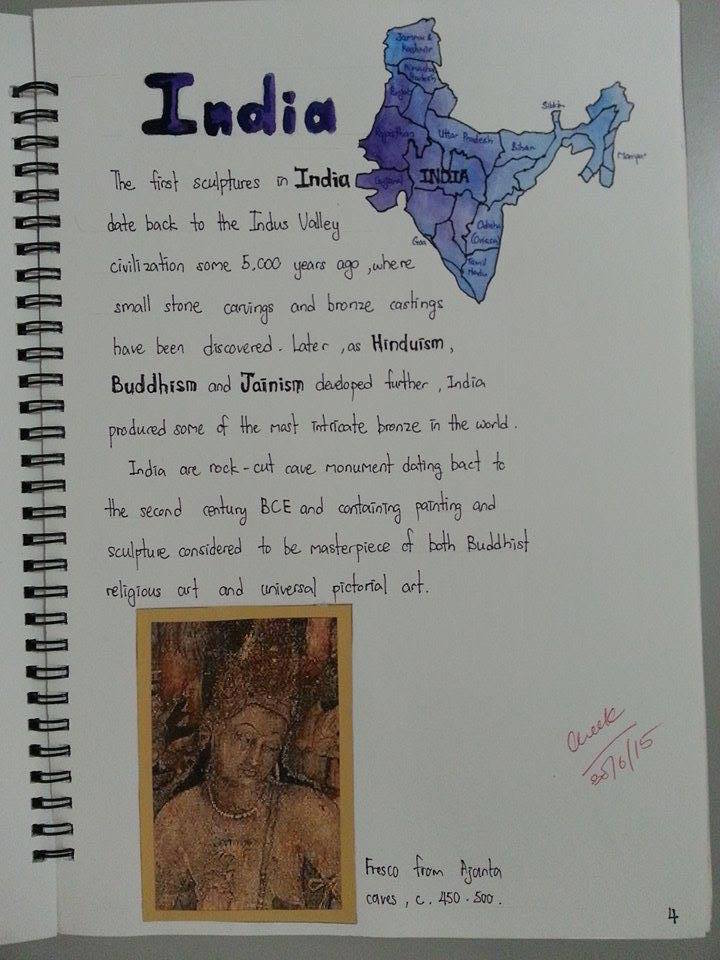 India
Jammu &
Kashmir
Himachal
Pradesh
Punjab
Rajasthan
Uttar Pradesh
Sikkim
Bihar
Manipur
Gujarat
INDIA
Odisha
(Orissa)
Goa
Tamil
Nadu
The first sculptures in India
date back to the Indus Valley
civilization some 5,000 years ago , where
small stone carvings and bronze castings
have been discovered. Later , as Hinduism ,
Buddhism and Jainism developed further , India
produced some of the mast intricate bronze in the world .
India are rock-cut cave monument dating bact to
the second century BCE and containing painting and
sculpture considered to be masterpiece of both Buddhist
religious art and universal pictorial art.
Fresco from Ajanta
caves , c. 450 - 500 .
4